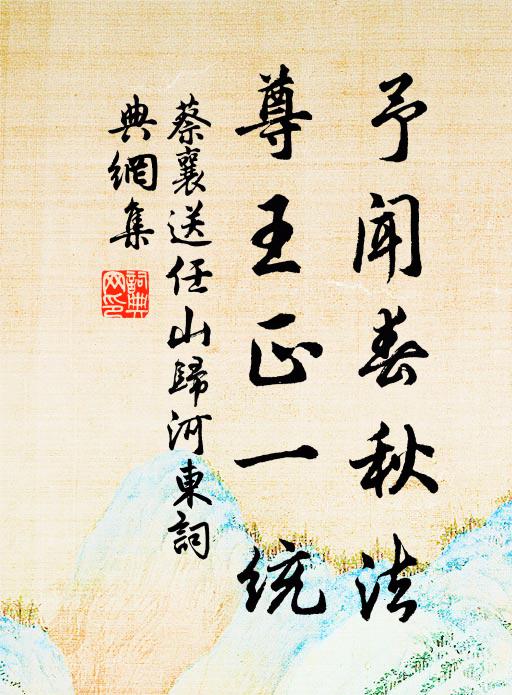 予聞春秋法
尊王正一統
蔡襄送任山歸河東詞
典網集
詞典網印